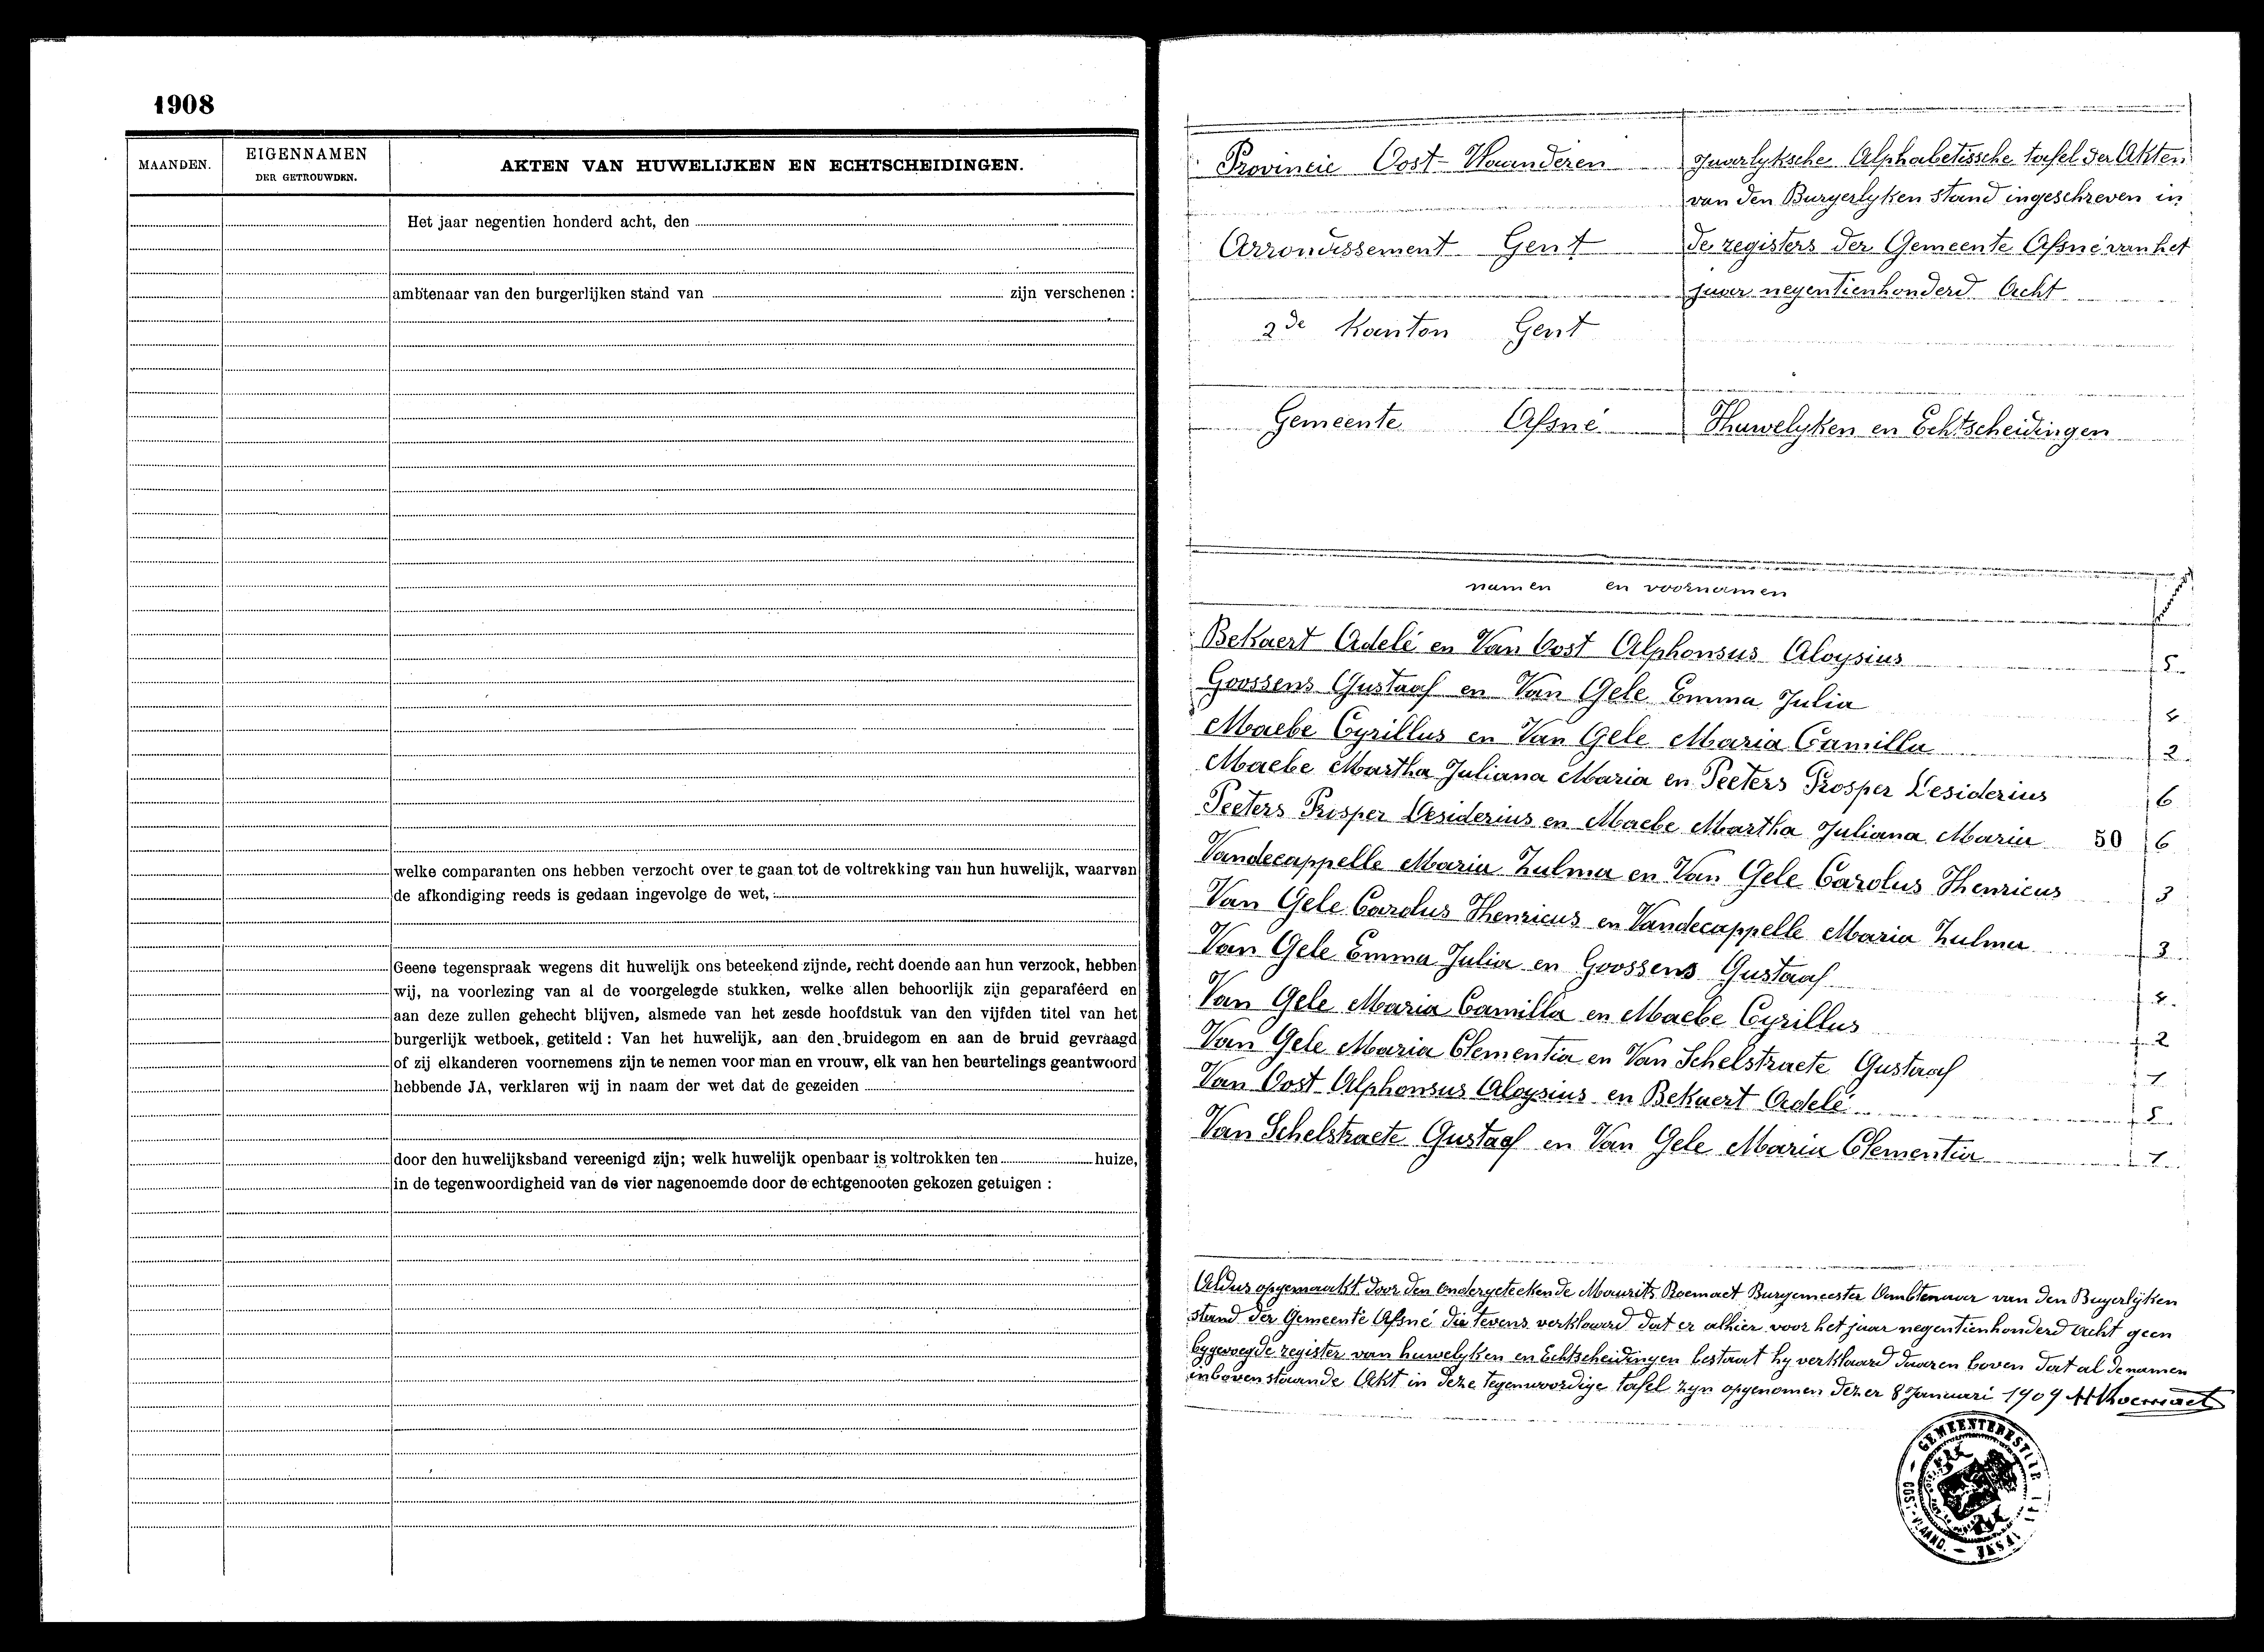 1908
MAANDEN.
EIGENNAMEN
DER GETROUWDEN.
AKTEN VAN HUWELIJKEN EN ECHTSCHEIDINGEN.
Het jaar negentien honderd acht, den
ambtenaar van den burgerlijken stand van zijn verschenen :
welke comparanten ons hebben verzocht over te gaan tot de voltrekking van hun huwelijk, waarvan
de afkondiging reeds is gedaan ingevolge de wet, :
Geene tegenspraak wegens dit huwelijk ons beteekend zijnde, recht doende aan hun verzoek, hebben
wij, na voorlezing van al de voorgelegde stukken, welke allen behoorlijk zijn geparafeerd en
aan deze zullen gehecht blijven, alsmede van het zesde hoofdstuk van den vijfden titel van het
burgerlijk wetboek, getiteld : Van het huwelijk, aan den bruidegom en aan de bruid gevraagd
of zij elkanderen voornemens zijn te nemen voor man en vrouw, elk van hen beurtelings geantwoord
hebbende JA, verklaren wij in naam der wet dat de gezeiden
door den huwelijksband vereenigd zijn; welk huwelijk openbaar is voltrokken ten huize,
in de tegenwoordigheid van de vier nagenoemde door de echtgenooten gekozen getuigen :
Provincie Oost-Vlaanderen
Arrondissement Gent
2de Kanton Gent
Gemeente Afsné
Jaarlyksche Alphabetissche tafel der Akten
van den Burgerlyken stand ingeschreven in
de registers der Gemeente Afsné van het
jaar negentienhonderd Acht
Huwelyken en Echtscheidingen
namen en voornamen
Bekaert Adelé en Van Oost Alphonsus Aloysius 5
Goossens Gustaaf en Van Gele Emma Julia 4
Maebe Cyrillus en Van Gele Maria Camilla 2
Maebe Martha Juliana Maria en Peeters Prosper Desiderius 6
Peeters Prosper Desiderius en Maebe Martha Juliana Maria 50 6
Vandecappelle Maria Zulma en Van Gele Carolus Henricus 3
Van Gele Carolus Henricus en Vandecappelle Maria Zulma 3
Van Gele Emma Julia en Goossens Gustaaf 4
Van Gele Maria Camilla en Maebe Cyrillus 2
Van Gele Maria Clementia en Van Schelstraete Gustaaf 1
Van Oost Alphonsus Aloysius en Bekaert Adelé 5
Van Schelstraete Gustaaf en Van Gele Maria Clementia 1
Aldus opgemaakt door den ondergeteekende Maurits Burgemeester Ambtenaar van den Bugerlyken
stand der Gemeente Afsné die tevens verklaard dat er alhier voor het jaar negentienhonderd Acht geen
bygevoegde register van huwelyken en Echtscheidingen bestaat hy verklaard daaren boven dat al de namen
in bovenstaande Akt in deze tegenwoordige tafel zyn opgenomen dezer 8 Januari 1909
GEMEENTEBESTUUR
OOST-VLAAND.